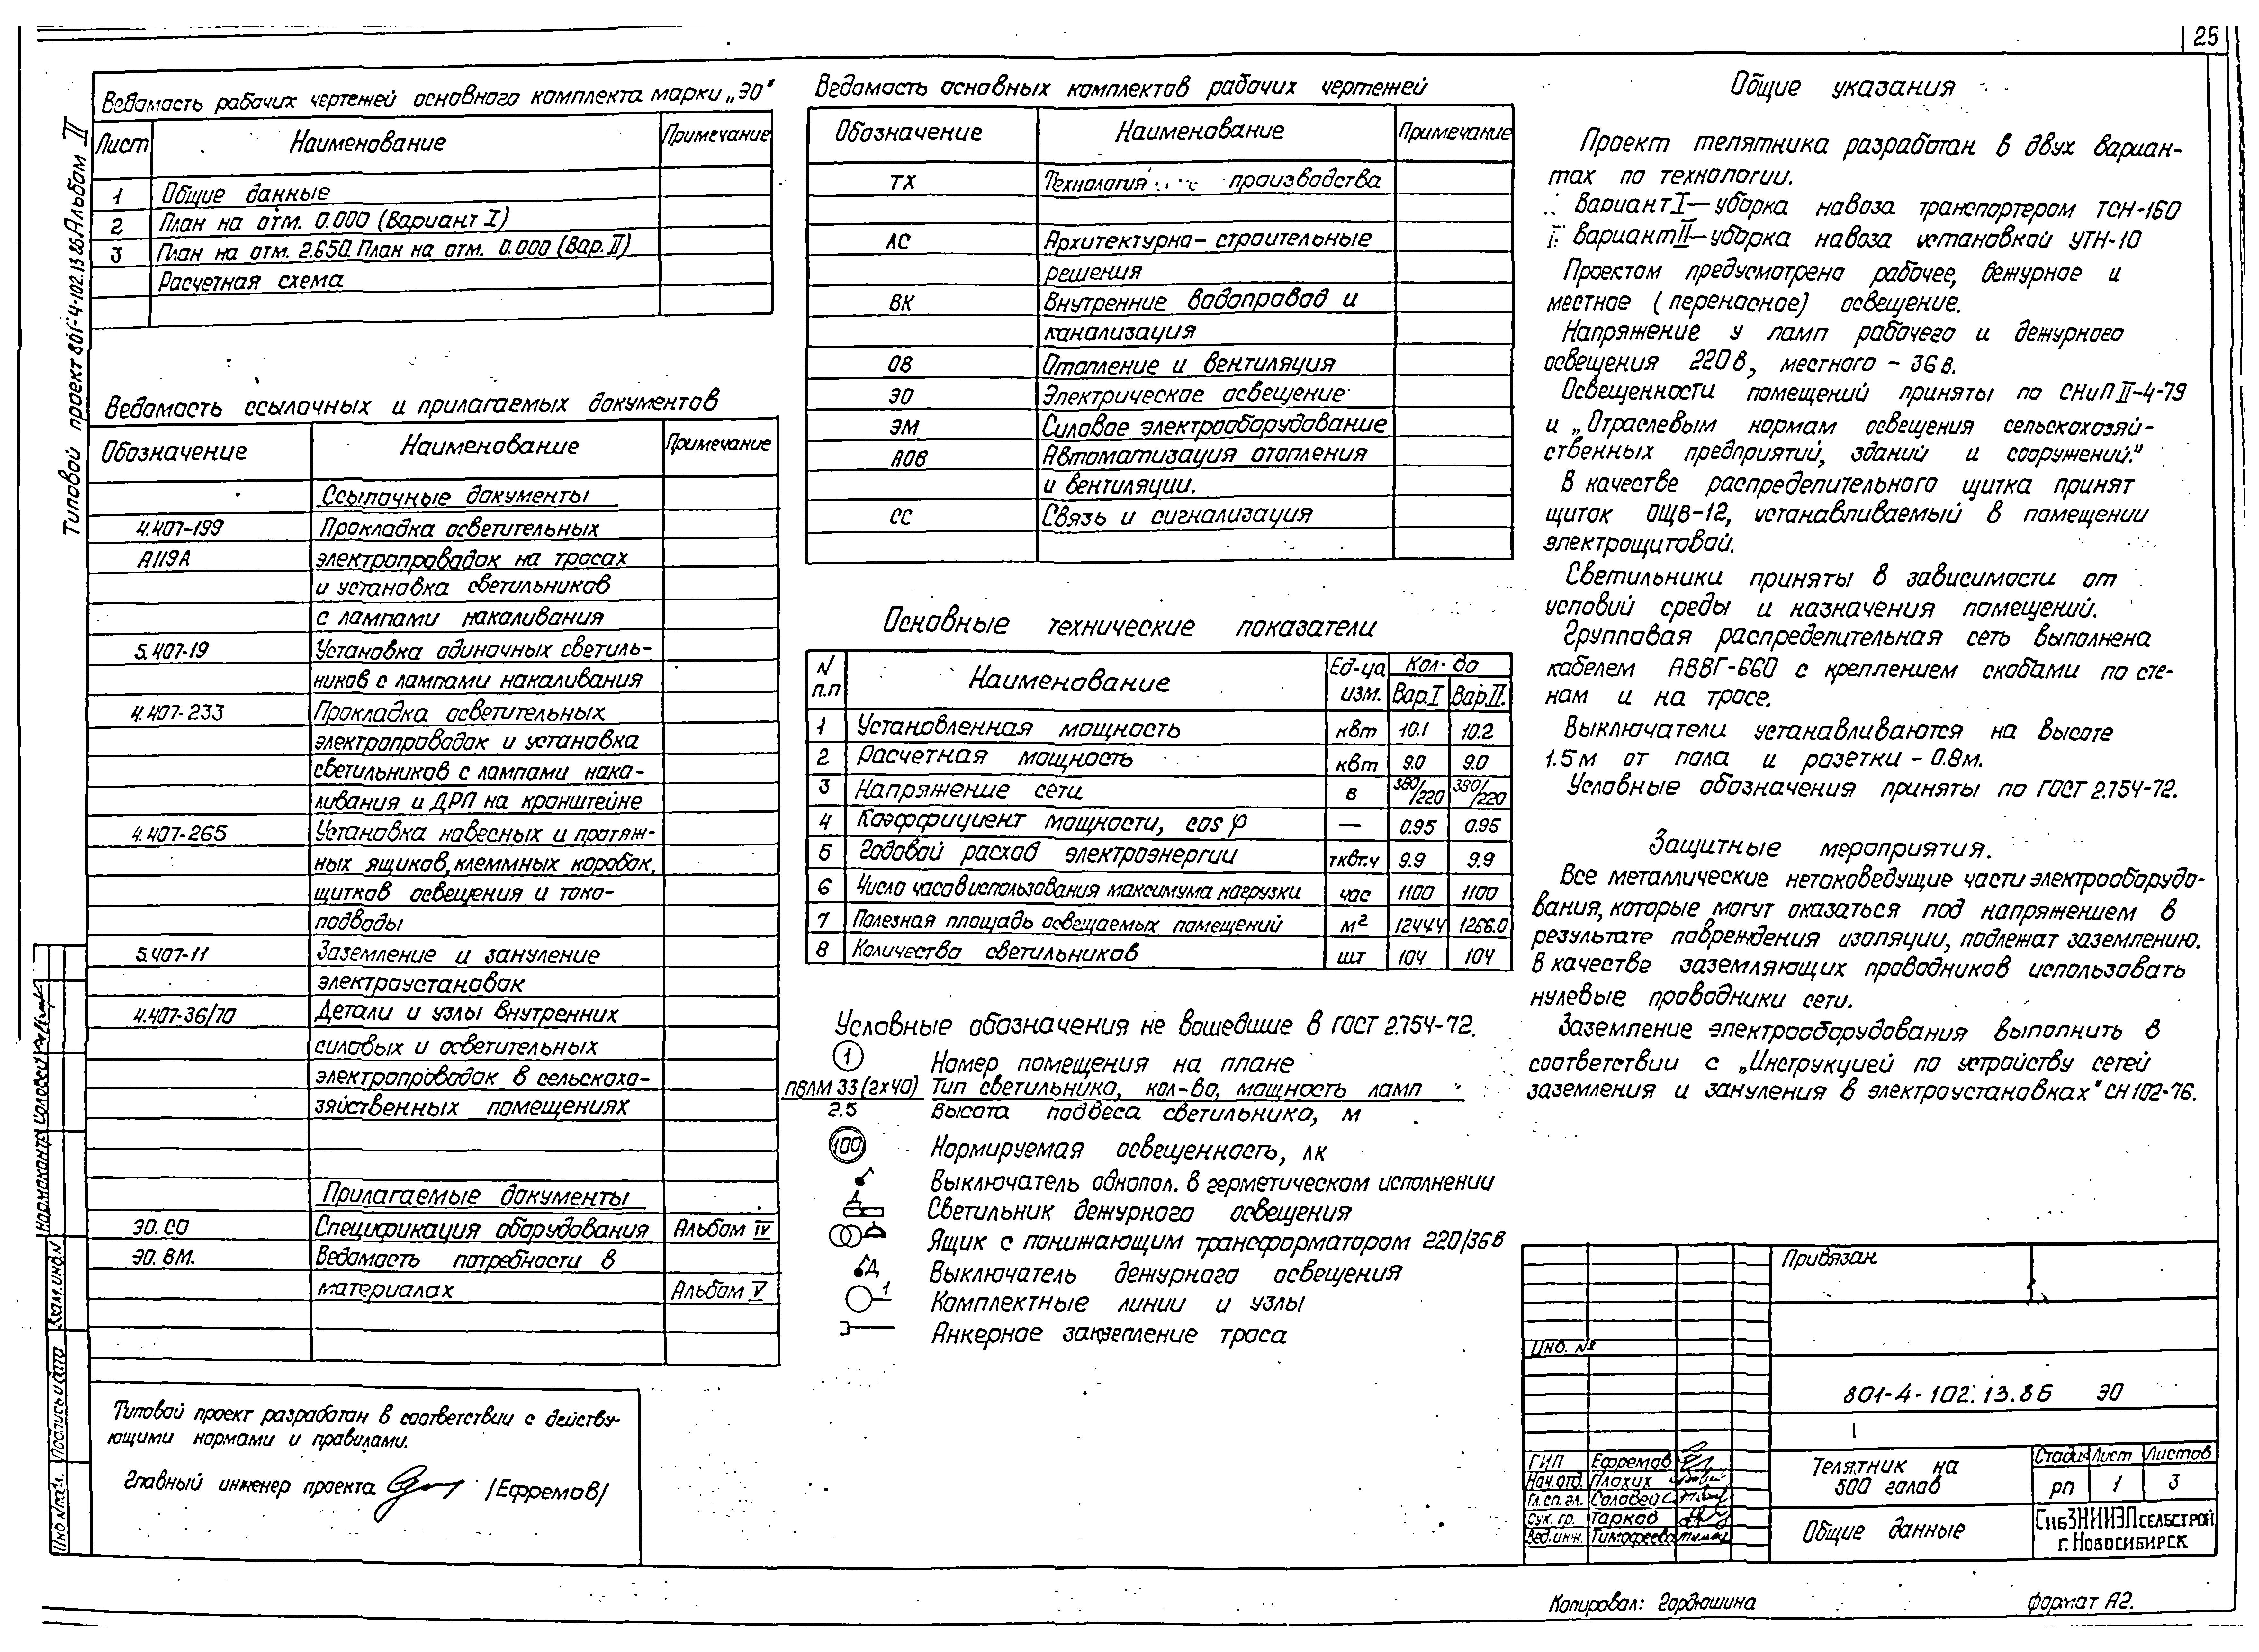 25
Типовой проект 801-4-102.13.86 Альбом II
Ведомость рабочих чертежей основного комплекта марки „ЭО"
Лист Наименование Примечание
1 Общие данные
2 План на отм. 0.000 (Вариант I)
3 План на отм. 2.650. План на отм. 0.000 (Вар. II)
Расчетная схема
Ведомость ссылочных и прилагаемых документов
Обозначение Наименование Примечание
Ссылочные документы
4.407-199 Прокладка осветительных
А119А электропроводок на тросах
и установка светильников
с лампами накаливания
5.407-19 Установка одиночных светиль-
ников с лампами накаливания
4.407-233 Прокладка осветительных
электропроводок и установка
светильников с лампами нака-
ливания и ДРЛ на кронштейне
4.407-265 Установка навесных и протяж-
ных ящиков, клеммных коробок,
щитков освещения и токо-
подводы
5.407-11 Заземление и зануление
электроустановок
4.407-36/70 Детали и узлы внутренних
силовых и осветительных
электропроводок в сельскохо-
зяйственных помещениях
Прилагаемые документы
ЭО.СО Спецификация оборудования Альбом IV
ЭО.ВМ. Ведомость потребности в
материалах Альбом V
Типовой проект разработан в соответствии с действу-
ющими нормами и правилами.
Главный инженер проекта /Ефремов/
Ведомость основных комплектов рабочих чертежей
Обозначение Наименование Примечание
ТХ Технология производства
АС Архитектурно-строительные
решения
ВК Внутренние водопровод и
канализация
ОВ Отопление и вентиляция
ЭО Электрическое освещение
ЭМ Силовое электрооборудование
АОВ Автоматизация отопления
и вентиляции.
СС Связь и сигнализация
Основные технические показатели
N п.п Наименование Ед-ца изм. Кол-во
Вар.I Вар.II.
1 Установленная мощность квт 10.1 10.2
2 Расчетная мощность квт 9.0 9.0
3 Напряжение сети в 380/220 380/220
4 Коэффициент мощности, cos φ — 0.95 0.95
5 Годовой расход электроэнергии т.квт.ч 9.9 9.9
6 Число часов использования максимума нагрузки час 1100 1100
7 Полезная площадь освещаемых помещений м² 1244.4 1256.0
8 Количество светильников шт 104 104
Условные обозначения не вошедшие в ГОСТ 2.754-72.
1 Номер помещения на плане
ПВЛМ 33 (2х40) Тип светильника, кол-во, мощность ламп
2.5 Высота подвеса светильника, м
100 Нормируемая освещенность, лк
Выключатель однопол. в герметическом исполнении
Светильник дежурного освещения
Ящик с понижающим трансформатором 220/36в
Д Выключатель дежурного освещения
1 Комплектные линии и узлы
Анкерное закрепление троса
Общие указания
Проект телятника разработан в двух вариан-
тах по технологии.
Вариант I — уборка навоза транспортером ТСН-160
Вариант II — уборка навоза установкой УТН-10
Проектом предусмотрено рабочее, дежурное и
местное (переносное) освещение.
Напряжение у ламп рабочего и дежурного
освещения 220в, местного - 36в.
Освещенности помещений приняты по СНиП II-4-79
и „Отраслевым нормам освещения сельскохозяй-
ственных предприятий, зданий и сооружений."
В качестве распределительного щитка принят
щиток ОЩВ-12, устанавливаемый в помещении
электрощитовой.
Светильники приняты в зависимости от
условий среды и назначения помещений.
Групповая распределительная сеть выполнена
кабелем АВВГ-660 с креплением скобами по сте-
нам и на тросе.
Выключатели устанавливаются на высоте
1.5м от пола и розетки - 0.8м.
Условные обозначения приняты по ГОСТ 2.754-72.
Защитные мероприятия.
Все металлические нетоковедущие части электрооборудо-
вания, которые могут оказаться под напряжением в
результате повреждения изоляции, подлежат заземлению.
В качестве заземляющих проводников использовать
нулевые проводники сети.
Заземление электрооборудования выполнить в
соответствии с „Инструкцией по устройству сетей
заземления и зануления в электроустановках" СН 102-76.
Привязан
Инв. №
801-4-102.13.86 ЭО
ГИП Ефремов
Нач.отд. Плохих
Гл.сп.эл. Соловей
Рук. гр. Тарков
Вед.инж. Тимофеева
Телятник на
500 голов
Стадия Лист Листов
РП 1 3
Общие данные
СибЗНИИЭПсельстрой
г. Новосибирск
Нормоконтр. Соловей
Взам.инв.N
Подпись и дата
Инв.N подл.
Копировал: Гордюшина
Формат А2.